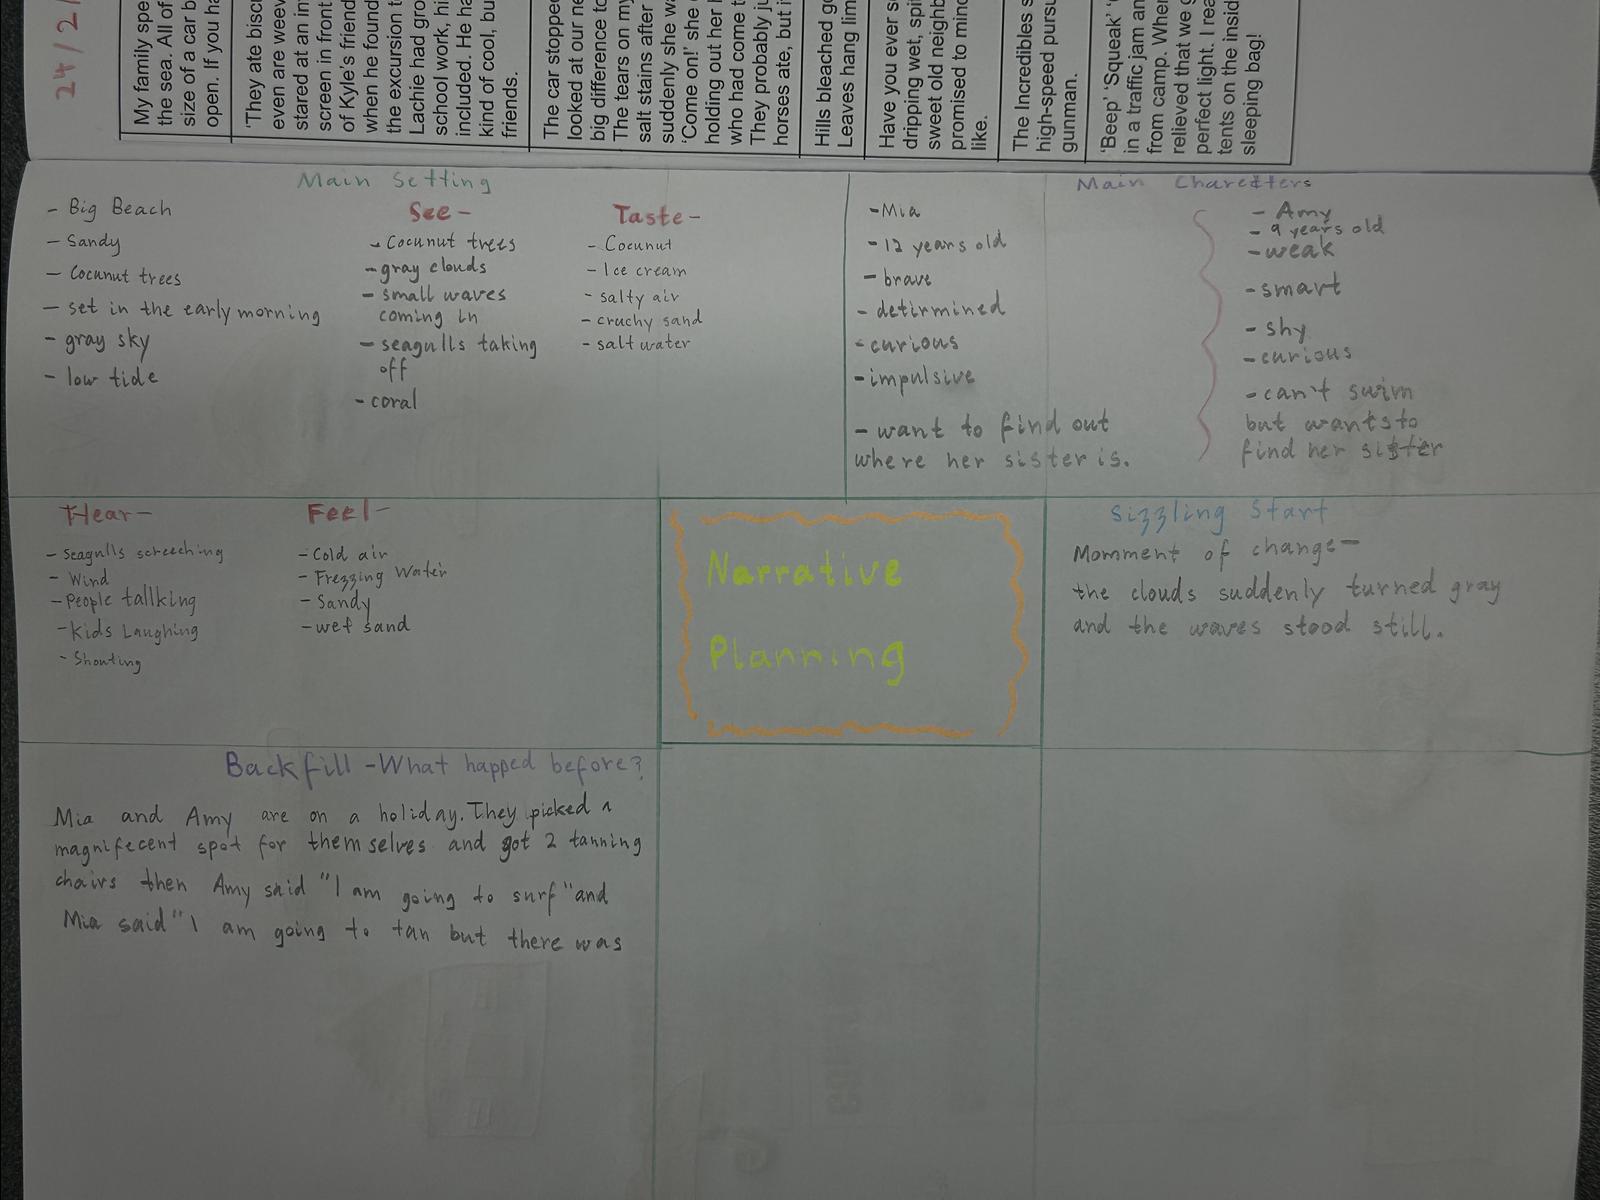 24/2/
My family spe
the sea. All of
size of a car b
open. If you ha
'They ate biscu
even are weev
stared at an inv
screen in front
of Kyle's friend
when he found
the excursion to
Lachie had gro
school work, hi
included. He ha
kind of cool, bu
friends.
The car stopped
looked at our ne
big difference to
The tears on my
salt stains after
suddenly she wa
'Come on!' she
holding out her
who had come t
They probably ju
horses ate, but i
Hills bleached go
Leaves hang lim
Have you ever s
dripping wet, spi
sweet old neighb
promised to mind
like.
The Incredibles s
high-speed pursu
gunman.
'Beep' 'Squeak' '
in a traffic jam an
from camp. When
relieved that we
perfect light. I rea
tents on the insid
sleeping bag!
Main Setting
- Big Beach
- Sandy
- Cocunut trees
- set in the early morning
- gray sky
- low tide
See-
- Cocunut trees
- gray clouds
- small waves
coming in
- seagulls taking
off
- coral
Taste-
- Cocunut
- Ice cream
- salty air
- cruchy sand
- salt water
Main Charecters
- Mia
- 12 years old
- brave
- detirmined
- curious
- impulsive
- want to find out
where her sister is.
- Amy
- 9 years old
- weak
- smart
- shy
- curious
- can't swim
but wants to
find her sister
Hear-
- Seagulls screeching
- Wind
- People tallking
- Kids Laughing
- Shouting
Feel-
- Cold air
- Frezzing Water
- Sandy
- wet sand
Narrative
Planning
Sizzling Start
Momment of change-
the clouds suddenly turned gray
and the waves stood still.
Backfill - What happed before?
Mia and Amy are on a holiday. They picked a
magnifecent spot for themselves and got 2 tanning
chairs then Amy said "I am going to surf" and
Mia said "I am going to tan but there was